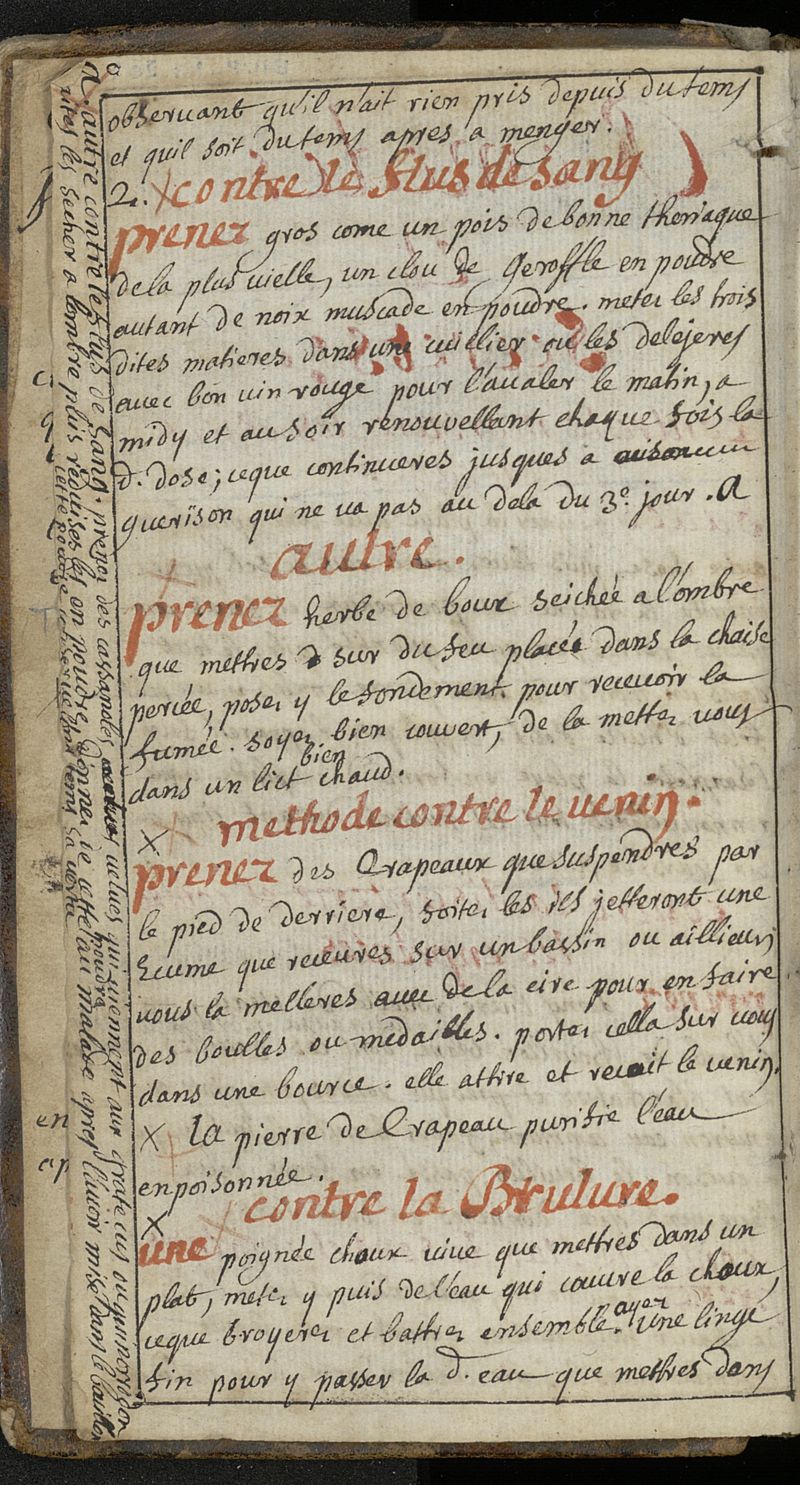 observant qu'il n'ait rien pris depuis du tems
et quil soit du tems apres a menger.
2. contre le flus de sang
prenez gros come un pois de bonne theriaque
de la plus vielle, un clou de geroffle en poudre
autant de noix muscade en poudre. metez les trois
dites matieres dans une cuillier ou les delejeres
avec bon vin rouge pour l'avaler le matin, a
midy et au soir renouvellant chaque fois la
d. dose; ceque continueres jusques a
guerison qui ne va pas au dela du 3e. jour. a
autre.
prenez herbe de boux seichée a l'ombre
que mettres sur du feu placée dans la chaise
percée, posez y le fondement pour recevoir la
fumée. soyez bien couvert, de la mettez vous
dans un lict bien chaud.
methode contre le venin.
prenez des Crapeaux que suspendres par
le pied de derriere, foitez les ils jetteront une
Ecume que receures sur un bassin ou aillieurs
vous la melleres avec de la cire pour en faire
des boulles ou medailles. portez cella sur vous
dans une bource. elle attire et recoit le venin.
la pierre de Crapeau purifie l'eau
enpoisonnée.
contre la Brulure.
une poignée chaux vive que mettres dans un
plat, metez y puis de l'eau qui couvre la chaux,
ceque broyerez et battrez ensemble. ayez une linge
fin pour y passer la d. eau que mettres dans
a. autre contre le flus de sang. prenez des
velues qui viennent aux ou
vites les secher a lombre puis reduises les en poudre donnez de cette poudre au malade apres l'avoir mise dans le bouillon
cette poudre
en
ap